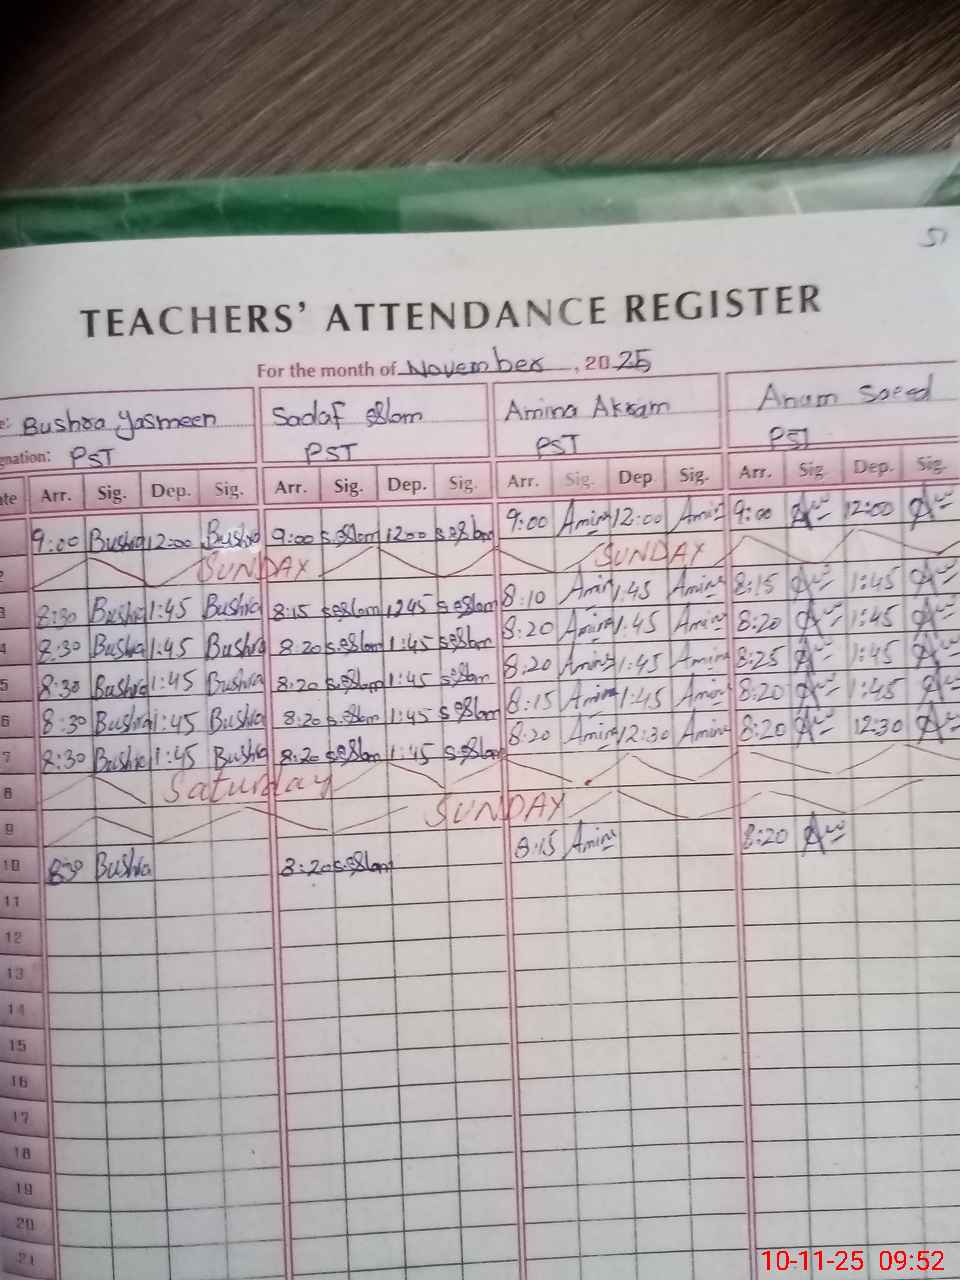 51
TEACHERS' ATTENDANCE REGISTER
For the month of November, 2025
e: Bushra Yasmeen Sadaf aslam Amina Akram Anam Saeed
gnation: PST PST PST PST
ate Arr. Sig. Dep. Sig. Arr. Sig. Dep. Sig. Arr. Sig. Dep Sig. Arr. Sig. Dep. Sig.
9:00 Bushra 12:00 Bushra 9:00 s.aslam 1200 s.aslam 9:00 Amina 12:00 Amina 9:00 12:00
2 SUNDAY SUNDAY
3 8:30 Bushra 1:45 Bushra 8:15 s.aslam 1245 s.aslam 8:10 Amina 1:45 Amina 8:15 1:45
4 8:30 Bushra 1:45 Bushra 8:20 s.aslam 1:45 s.aslam 8:20 Amina 1:45 Amina 8:20 1:45
5 8:30 Bushra 1:45 Bushra 8:20 s.aslam 1:45 s.aslam 8:20 Amina 1:45 Amina 8:25 1:45
6 8:30 Bushra 1:45 Bushra 8:20 s.aslam 1:45 s.aslam 8:15 Amina 1:45 Amina 8:20 1:45
7 8:30 Bushra 1:45 Bushra 8:20 s.aslam 1:45 s.aslam 8:20 Amina 12:30 Amina 8:20 12:30
8 Saturday
9 SUNDAY
10 830 Bushra 8:20 s.aslam 8:15 Amina 8:20
11
12
13
14
15
16
17
18
19
20
21
10-11-25 09:52